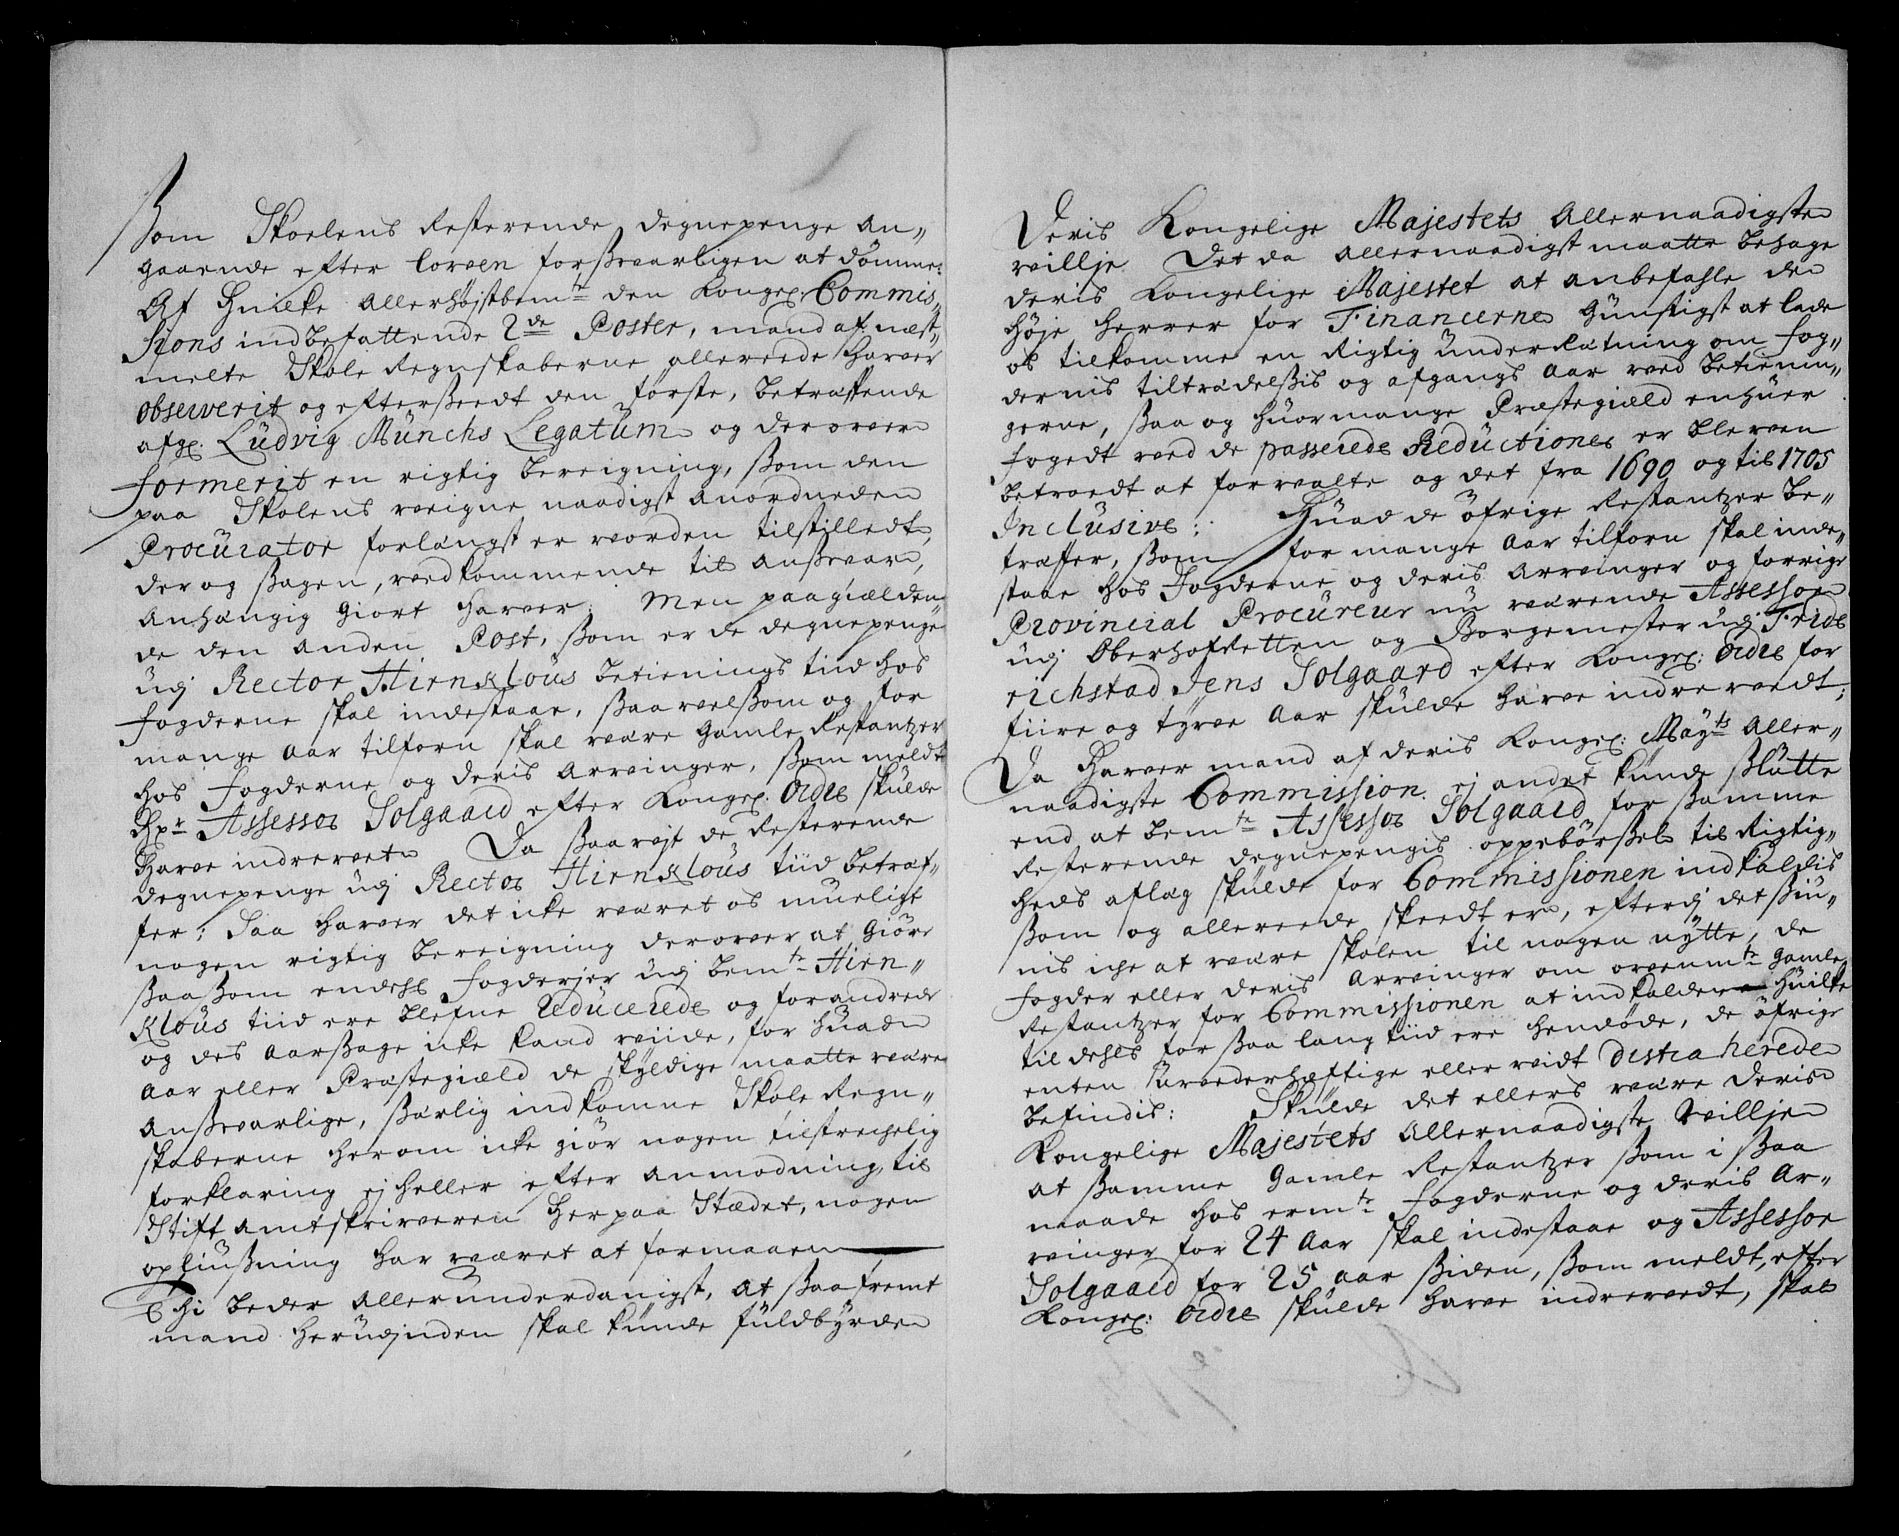 som Skoelens Resterende degnepenge an„
gaaende efter loven forssvarligen at dömme:
Af hvilke allerhøjstbemte den Kongel: Commis„
sions indbefattende 2de Poster, mand af næst„
melte Skole Regnskaberne allereede haver
observerit og efterseedt den første, betræffende
afg: Lüdvig Münchs Legatum og derover
formerit en rigtig bereigning, som den
paa Skolens veigne naadigst anordneden
Procürator forlængst er worden tilstilledt,
der og sagen, vedkommende til ansvar,
anhængig giort haver. Men paagielden„
de den anden Post, som er de degnepenge
udj Rector Hirnklous betienings tiid hos
fogderne skal indestaae, saavelsom og for
mange aar tilforn skal være gamle Restantzer
hos fogderne og deris arvinger, som meldt
Hr: Assessor Solgaard efter Kongel: Ordre skulde
have indrevet Da saavit de Resterende
degnepenge udj Rector Hirnklous tiid betræf„
fer; Saa haver det icke været os mueligt
nogen rigtig bereigning derover at giöre
saasom endehl fogderjer udj bemte Hirn„
klous tiid ere blefne Reducerede og forandrede
og des aarsage icke kand viide, for huad
aar eller Præstegield de skyldige maatte være
ansvarlige, særlig indkomne Skole Regn„
skaberne herom icke giör nogen tilstrechelig
forklaring, ej heller efter anmodning, til
Stift amtskriveren her paa Stædet, nogen
opliusning har været at formaae
Thi beder allerunderdanigst, at saafremt
mand herudjnden skal kunde fuldbyrde
Deris Kongelige Majestets Allernaadigste
villje Det da allernaadigst maatte behage
deris Kongelige Majestet at anbefahle de
höje Herrer for Financerne günstigst at lade
os tilkomme en Rigtig underRætning om fog„
dernis tiltrædelsis og afgangs aar ved betienin„
gerne, saa og huormange Præstegield enhuer
fogedt ved de passerede Reductioner er bleven
betroedt at forvalte og det fra 1690 og til 1705
Inclusive: Huad de öfrige Restantzer be„
træffer, som for mange aar tilforn skal inde„
staae hos fogderne og deris arvinger og forrige
Provincial Procureur nu værende Assessor
udj Oberhofretten og Borgemester udj Fride
richstad Jens Solgaard efter Kongel: Ordre for
fiire og tyve aar skulde have indrevedt;
Da haver mand af deris Kongel: Mayts aller„
naadigste Commission ej andet kunde slutte
end at bemte Assessor Solgaard for samme
Resterende degnepengis oppebörsel til Rigtig„
heds aflæg skulde for Commissionen indkaldis
som og allereede skeedt er, efterdj det siu„
nis iche at være skolen til nogen nytte, de
fogder eller deris arvinger om ovenmte gamle
Restantzer for Commissionen at indkalde huilke
til dehls for saa lang tiid ere hendøde, de öfrige
enten urederhæftige eller vidt distraherede
befindis: Skulde det ellers være deris
Kongelige Majestets allernaadigste villje
at samme gamle Restantzer som i saa
maade hos ermte fogderne og deris Ar„
vinger for 24 aar skal indestaae og Assessor
Solgaard for 25 aar siden, som meldt, efter
Kongel: Ordre skulde have indrevedt, skal